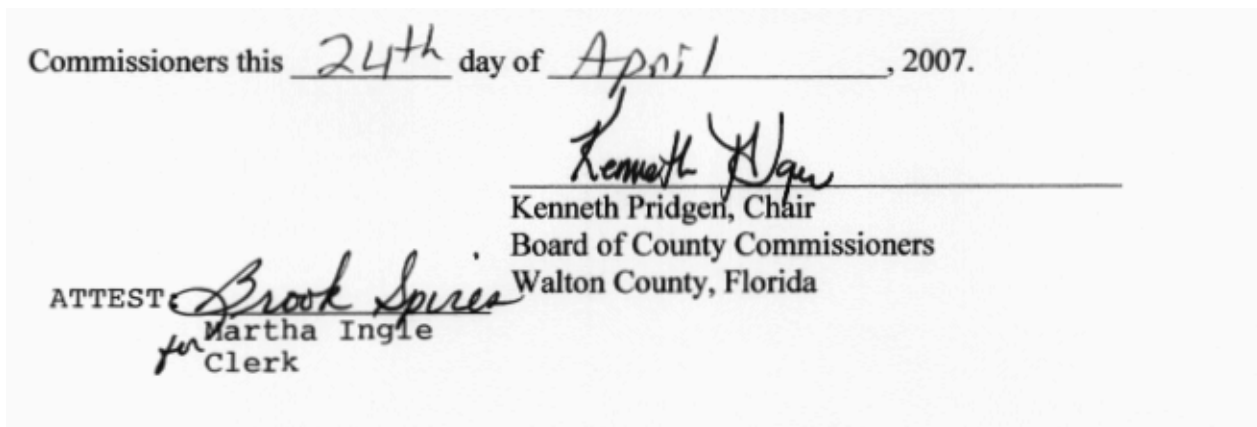 Commissioners this 24th day of April, 2007.
Kenneth
Kenneth Pridgen, Chair
Board of County Commissioners
Walton County, Florida
ATTEST: Brook Spires
for Martha Ingle
Clerk